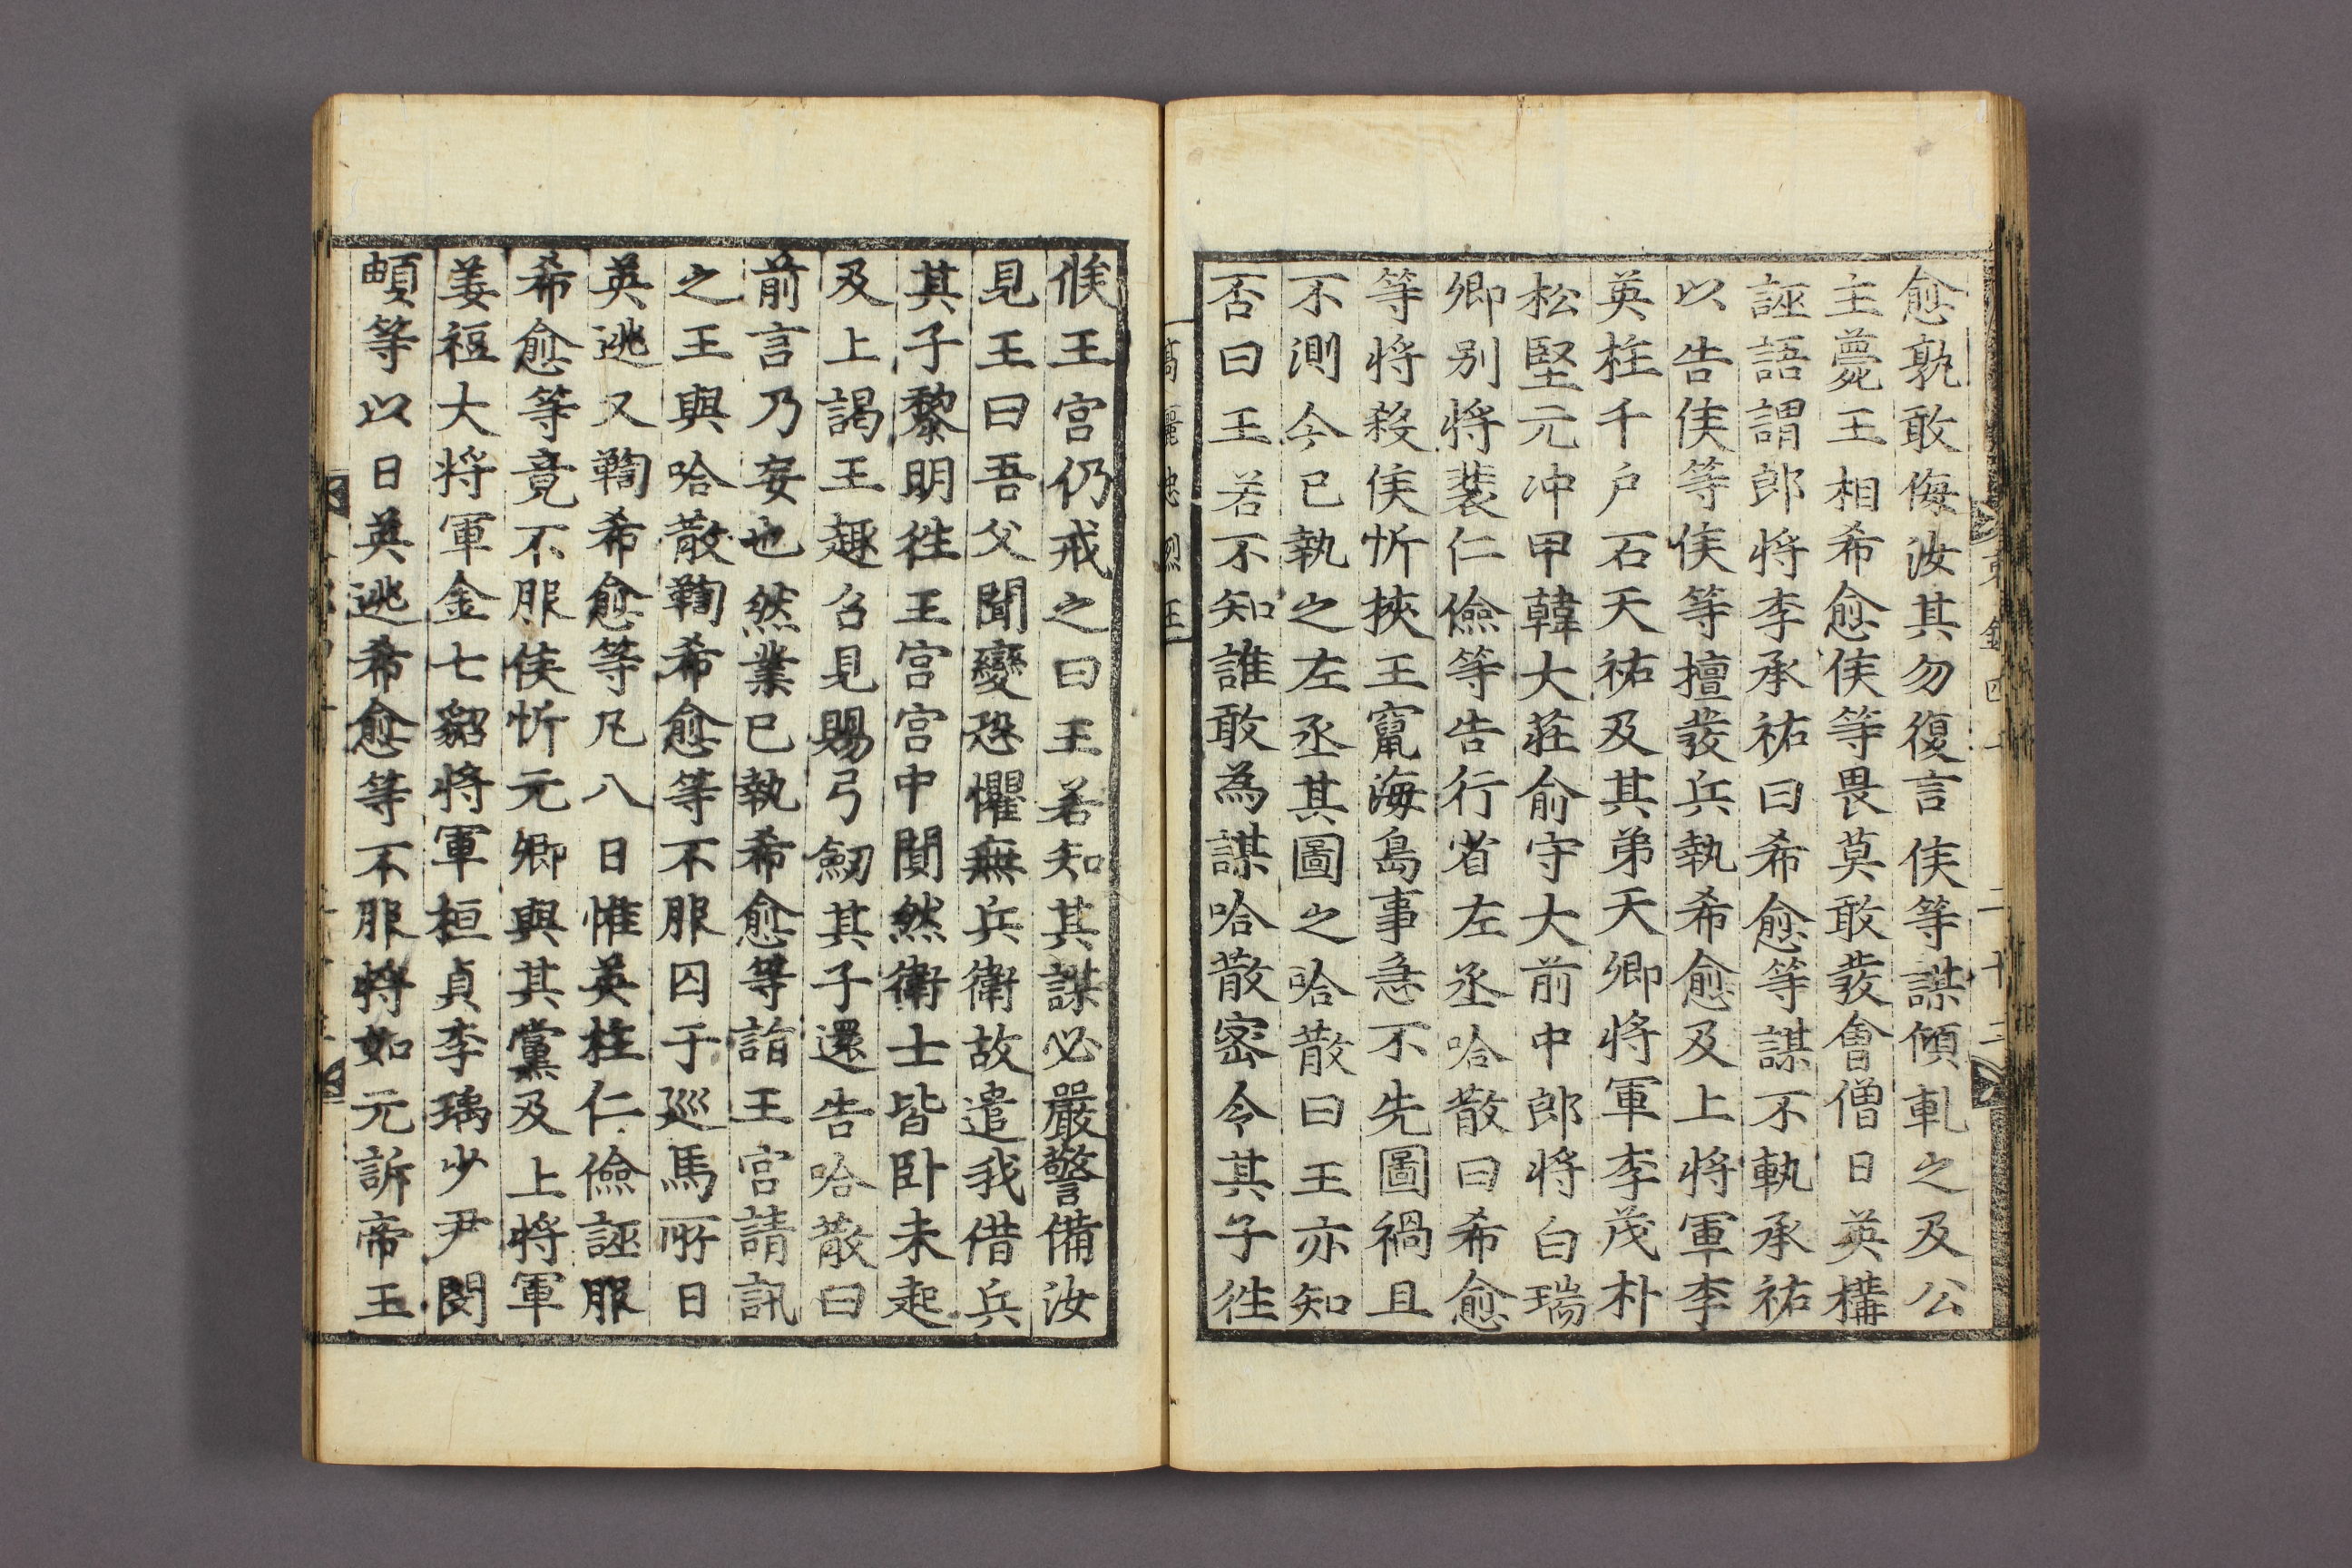 愈孰敢侮汝其勿復言侯等謀傾軋之及公
主薨王相希愈侯等畏莫敢發會僧日英構
誣語謂郎將李承祐曰希愈等謀不軌承祐
以告侯等侯等擅發兵執希愈及上將軍李
英柱千戶石天祐及其弟天卿將軍李茂朴
松堅元冲甲韓大莊俞守大前中郎將白瑞
卿别將裴仁儉等告行省左丞哈散曰希愈
等將殺侯忻挾王竄海島事急不先圖禍且
不測今已執之左丞其圖之哈散曰王亦知
否曰王若不知誰敢為謀哈散密令其子徃
高麗忠烈王
候王宫仍戒之曰王若知其謀必嚴警備汝
見王曰吾父聞變恐懼無兵衛故遣我借兵
其子黎明徃王宫宫中闃然衛士皆卧未起
及上謁王趣召見賜弓劒其子還告哈散曰
前言乃妄也然業已執希愈等詣王宫請訊
之王與哈散鞫希愈等不服囚于巡馬所日
英逃又鞫希愈等凡八日惟英柱仁儉誣服
希愈等竟不服侯忻元卿與其黨及上將軍
姜裋大將軍金七貂將軍桓貞李瑀少尹閔
頔等以日英逃希愈等不服將如元訴帝王